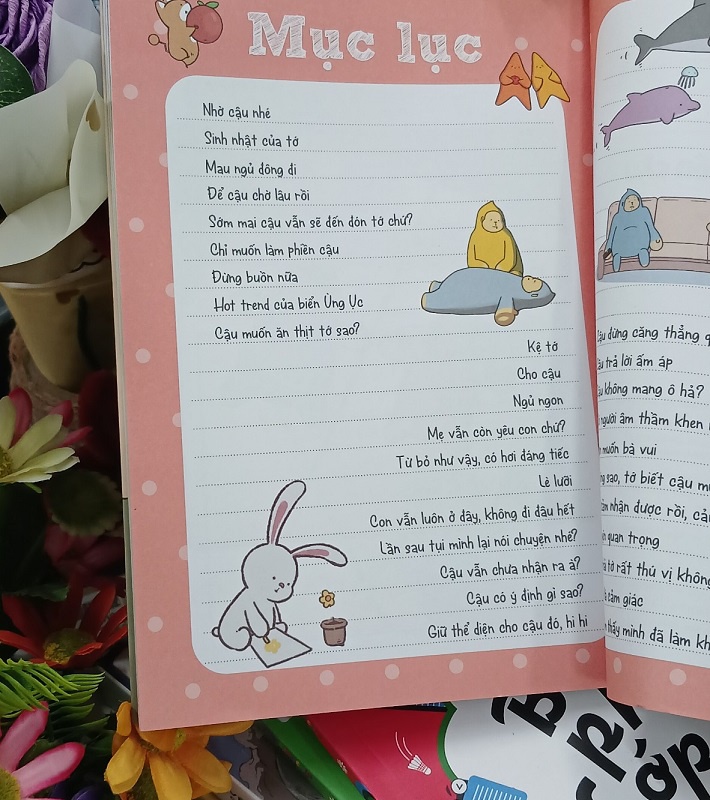 Mục lục
Nhờ cậu nhé
Sinh nhật của tớ
Mau ngủ đông đi
Để cậu chờ lâu rồi
Sớm mai cậu vẫn sẽ đến đón tớ chứ?
Chỉ muốn làm phiền cậu
Đừng buồn nữa
Hot trend của biển Ùng Ục
Cậu muốn ăn thịt tớ sao?
Kệ tớ
Cho cậu
Ngủ ngon
Mẹ vẫn còn yêu con chứ?
Từ bỏ như vậy, có hơi đáng tiếc
Lè lưỡi
Con vẫn luôn ở đây, không đi đâu hết
Lần sau tụi mình lại nói chuyện nhé?
Cậu vẫn chưa nhận ra à?
Cậu có ý định gì sao?
Giữ thể diện cho cậu đó, hi hi
đừng căng thẳng
trả lời ấm áp
không mang ô hả?
người âm thầm khen
muốn bà vui
sao, tớ biết cậu
nhận được rồi,
quan trọng
tớ rất thú vị không
cảm giác
thấy mình đã làm